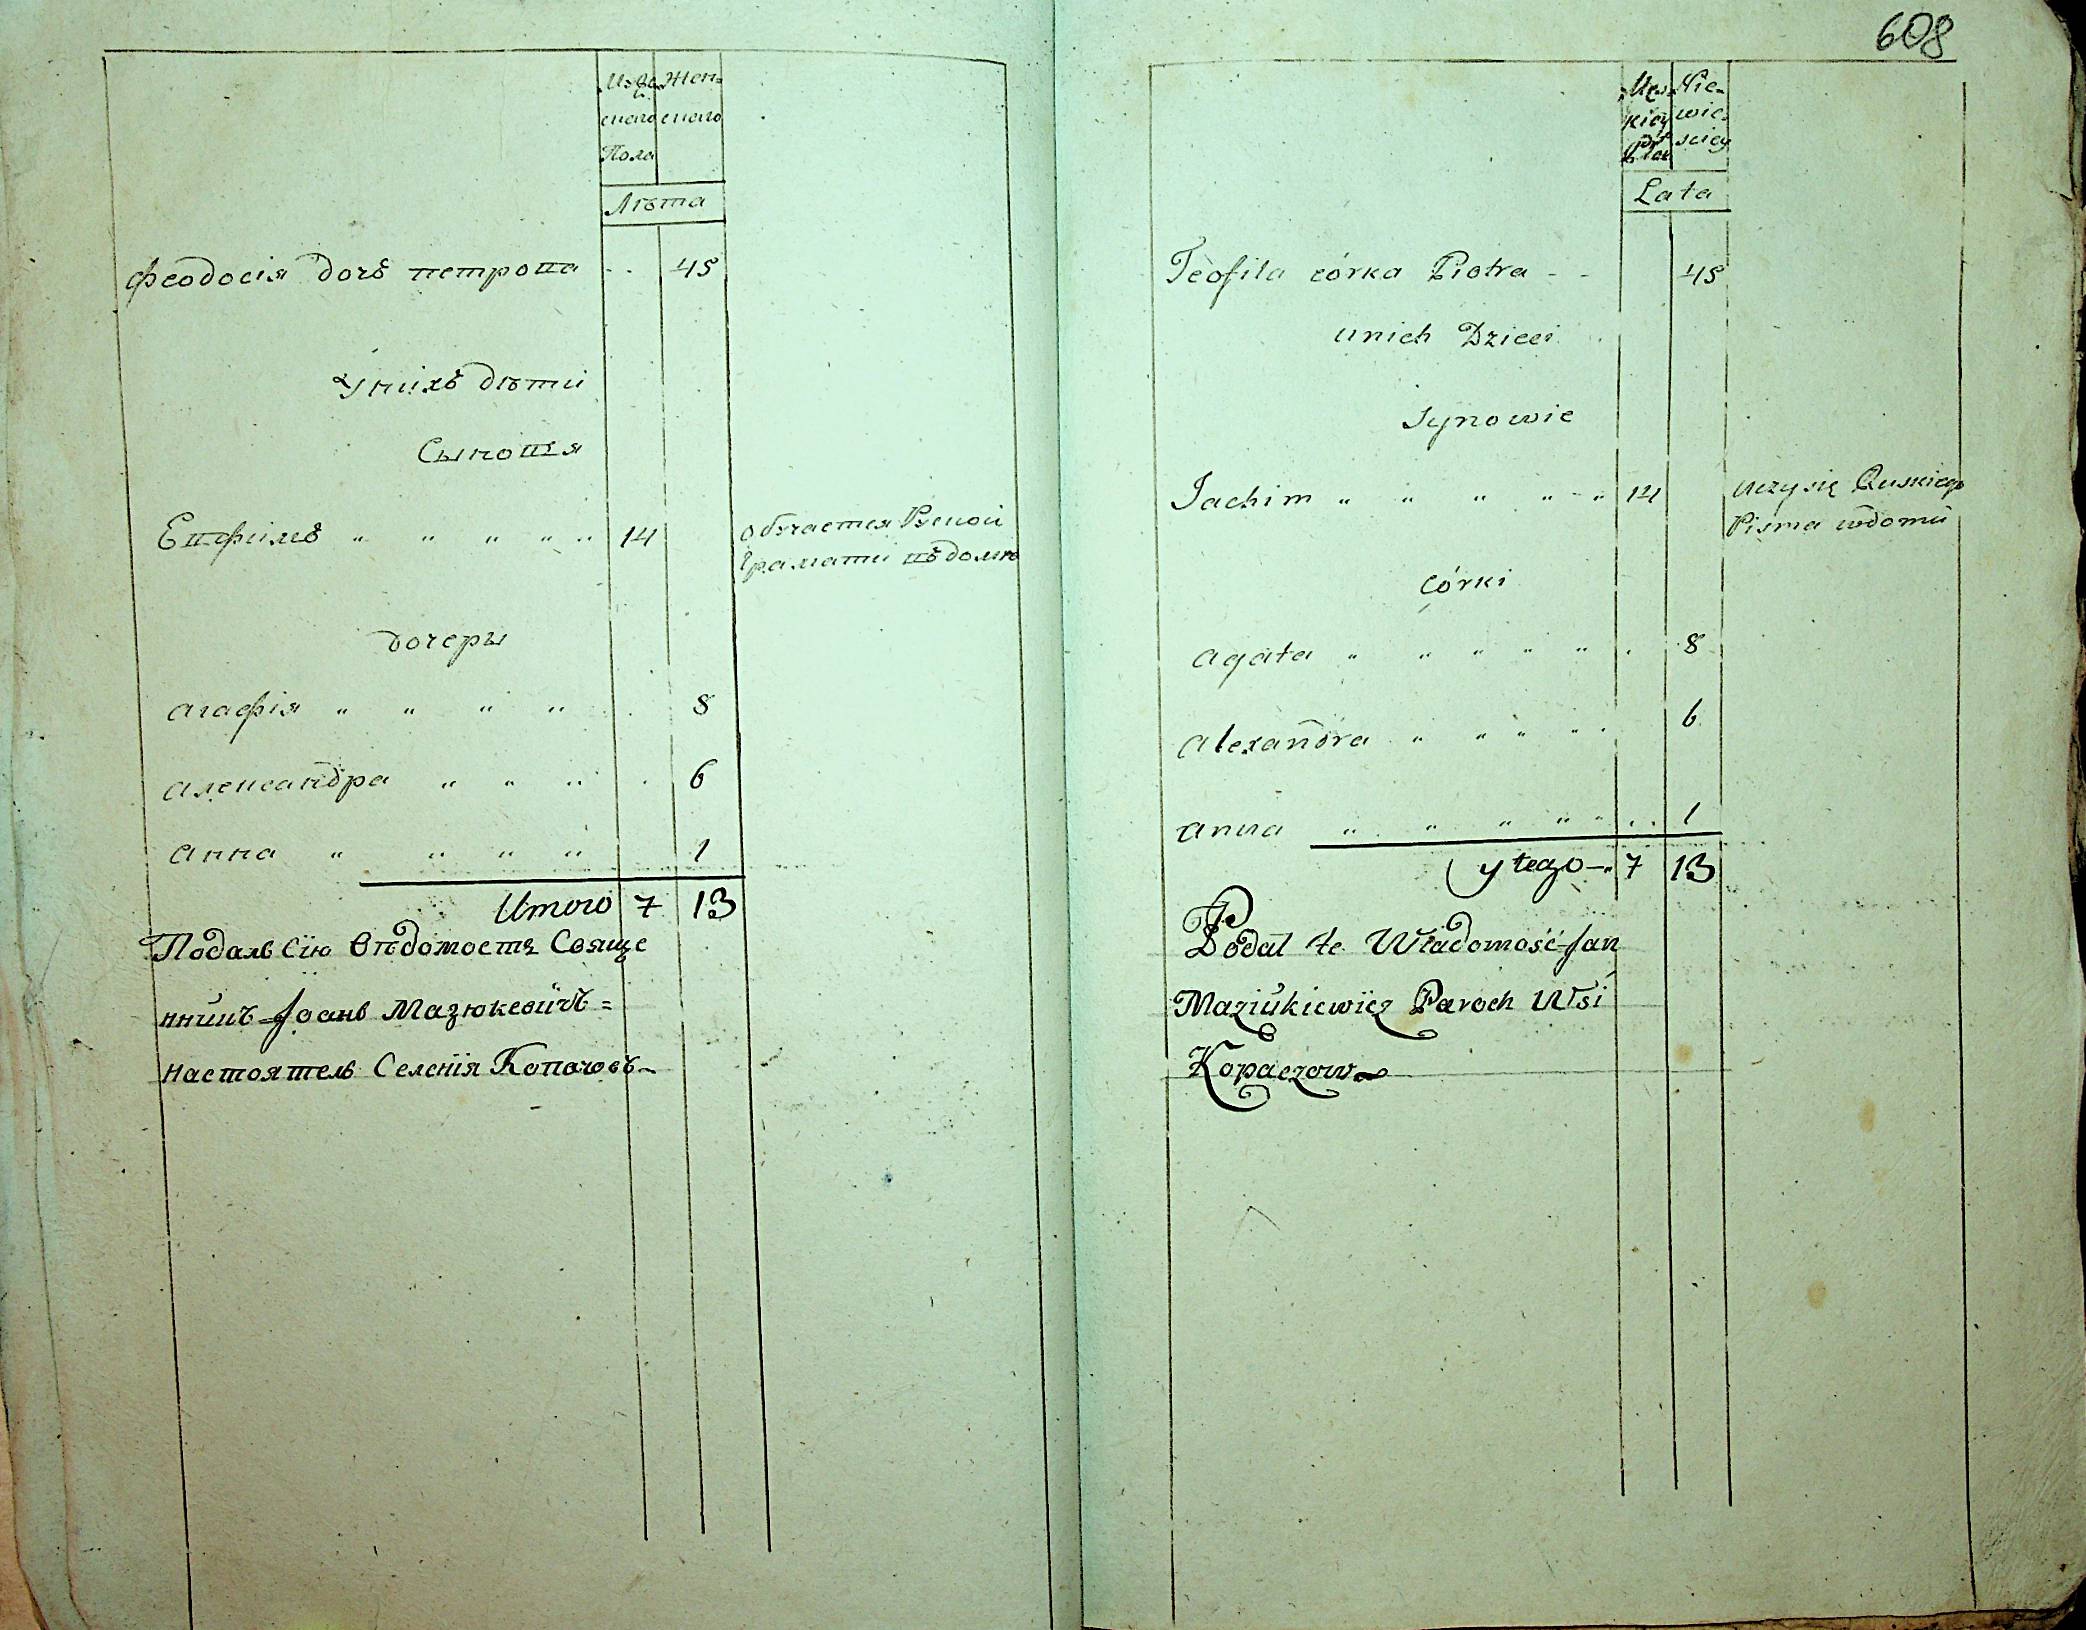 Мужe- Жен-
скаго скаго
Пола
Лѣта
Феодосія дочь петрова - - 45
У нихъ дѣти
Сыновя
Евфимъ „ „ „ „ „ 14 обучается Руской
Грамати въ дому
дочеры
агафія „ „ „ „ 8
александра „ „ „ 6
анна „ „ „ „ 1
Итого 7 13
Подалъ Сїю Вѣдомость Свяще
нникъ Іоанъ Мазюкевичъ =
Настоятель Селенїя Копачовъ
608
Męz- Nie-
kiey wie-
płci sciey
Lata
Teofila córka Piotra - - 45
unich Dzieci
synowie
Jachim „ „ „ „ - „ 14 uczy się Ruskiego
Pisma wdomu
córki
agata „ „ „ „ „ 8
alexandra „ „ „ „ 6
anna „ „ „ „ „ 1
y tego 7 13
Podał te Wiadomość Jan
Maziukiewicz Paroch Wsi
Kopaczow